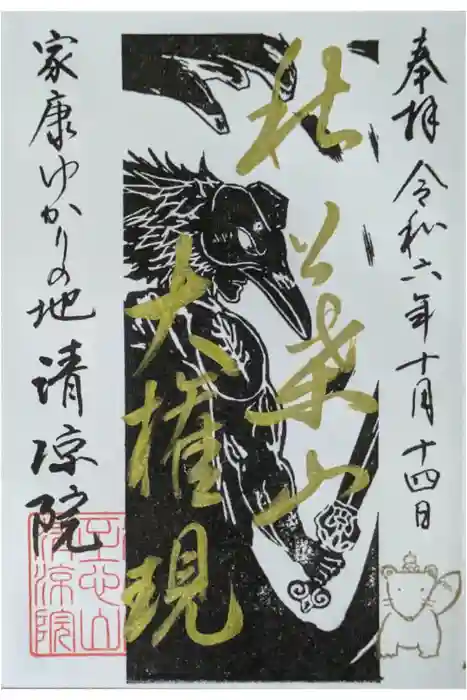 奉拝 令和六年十月十四日
秋葉山
大権現
家康ゆかりの地 清凉院